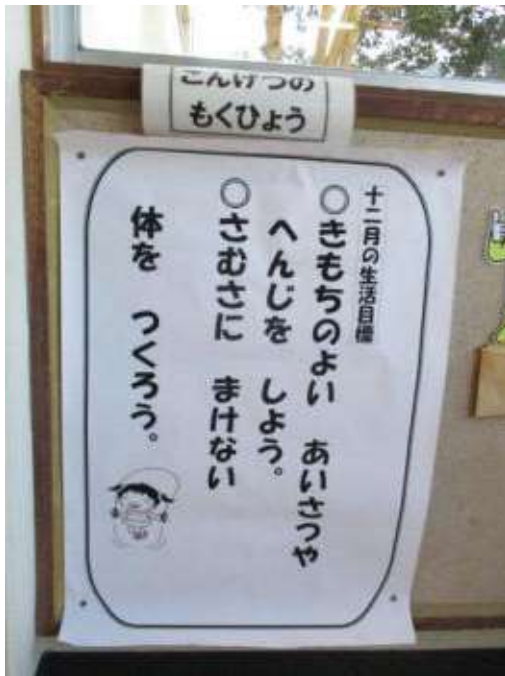 こんげつの
もくひょう
十二月の生活目標
○きもちのよい　あいさつや
へんじを　しよう。
○さむさに　まけない
体を　つくろう。